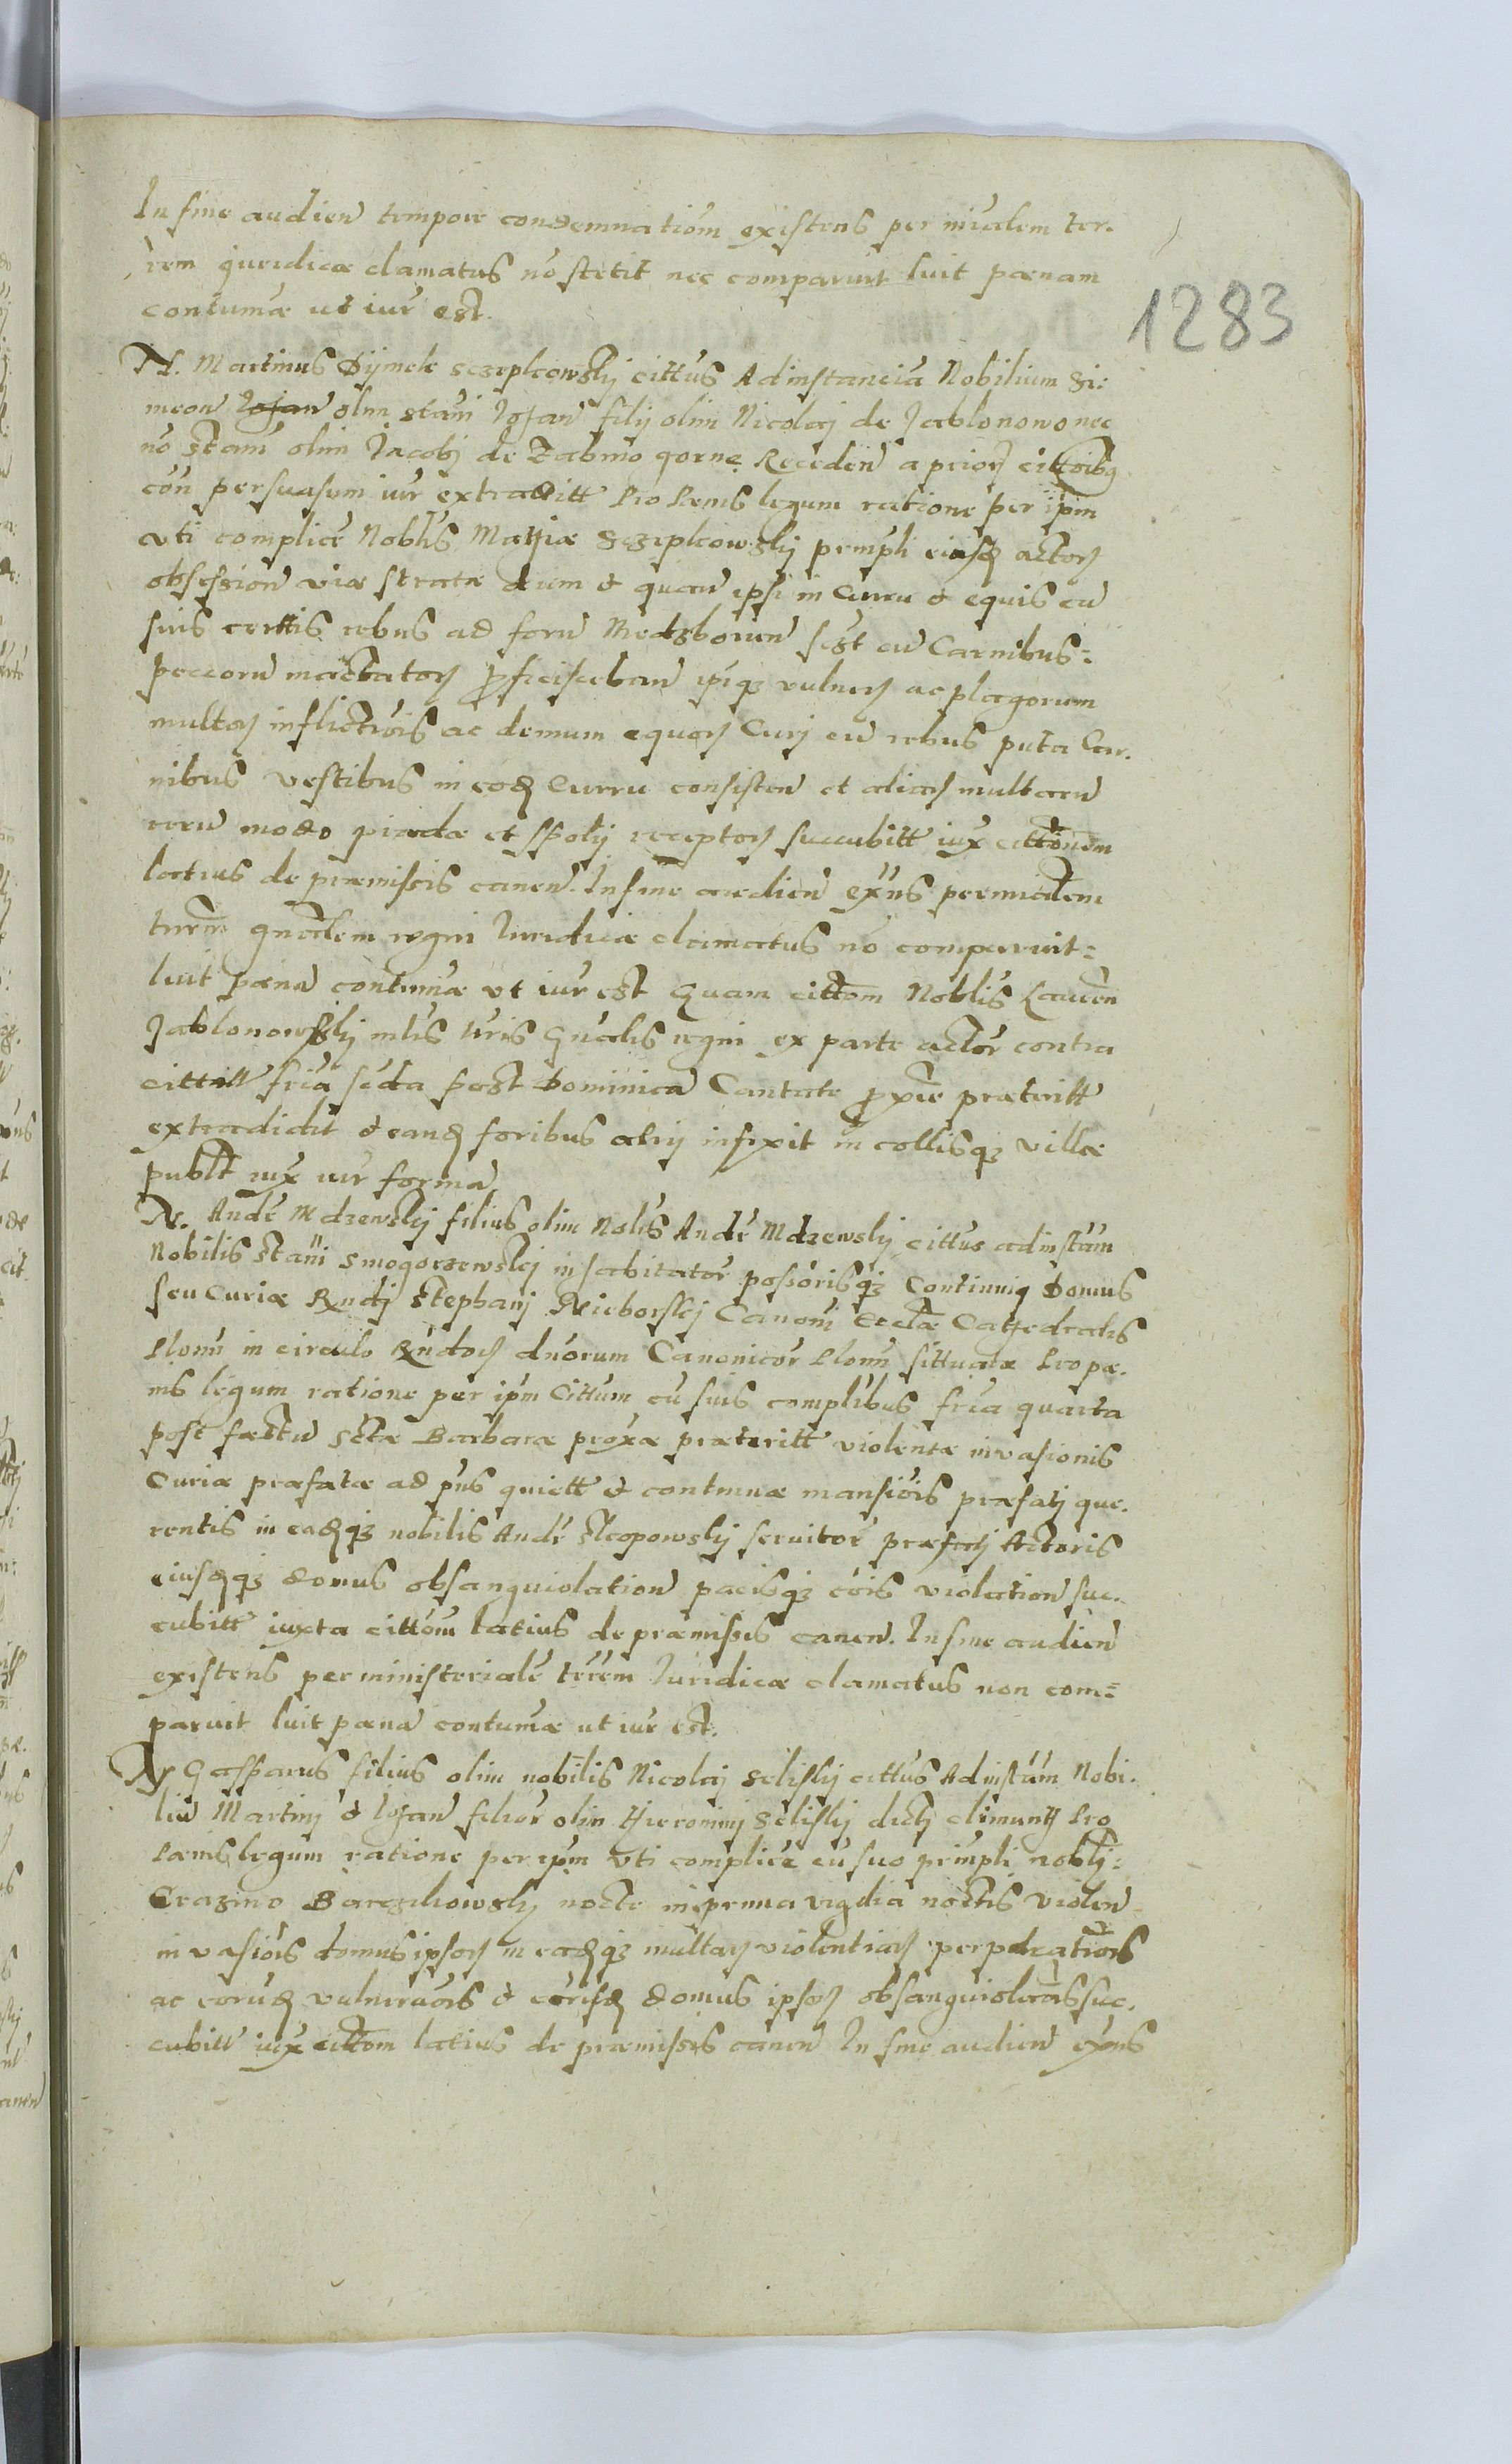 In fine audien tempore condemnationi existens per nialem ter.
rem iuridicæ clamatus nō stetit nec comparuit luit pœnam
contumæ ut iur est.
1283
N. Martinus Dijmek sczepkowskij cittus Ad instancia Nobilium Si:
meon Johan olim stani Johan filij olim Nicolaj de Jablonowo nec
nō stani olim Jacobj de Zabino gorne Receden a prior cittoibq
con persuasum iur extraditt Pro Pœnis legum ratione per ipm
vti complice Noblis Mathiæ Sczepkowskij prmpli eiusq actor
obsession viæ stratæ dum et quan ipsi in Curru et equis cu
suis certis rebus ad foru Medzborum sest cu Carnibus=
peccoru mactator proficisceban ipiq vulner ac plagorum
multor inflictiois ac demum equor Curj cu rebus puta Car.
nibus vestibus in eodq Curru consisten et aliar multaru
reru modo prædæ et spolij receptor succubitt iux cittonem
latius de præmissis canen. In fine audien exns per nialem
trrem gnalem regni Iuridicæ clamatus nō comparuit=
luit pœna contumæ vt iur est Quam cittom Noblis Lauren
Jablonowskij mlis trris Gnalis regni ex parte actor contra
cittatt feria secda post Dominica Cantate proxie præteritt
extradidit et eandq foribus alij infixit in collisq villæ
publt iux iur forma
N. Andr Mdzewskij filius olim Nolis Andr Mdzewskij cittus ad instam
Nobilis stani Smogorzewskj inhabitator possorisq Continuiq Domus
seu Curiæ Rndj Stephanj Nieborskj Canoni Ecclæ Cathedralis
Plocn in circulo Rndor dnorum Canonicor Plocn sittuatæ Pro pœ.
nis legum ratione per ipm Cittum cu suis complibus feria quarta
post festu sctæ Barbaræ proxæ præteritt violentæ invasionis
Curiæ præfatæ ad pns quiett et continuæ mansiois præfatj que.
rentis in eadq nobilis Andr Skopowskij seruitor præfatj Actoris
eiusdqq domus obsanguiolation pacisq cois violation suc.
cubitt iuxta cittom latius de præmissis canen. In fine audien
existens per ministeriale trrem Iuridicæ clamatus non com=
paruit luit pœna contumæ ut iur est.
N Gasparus filius olim nobilis Nicolaj Seliskij cittus Ad instam Nobi.
liu Martinj et Johan filior olim Hieronimj Seliskij dictj climunth Pro
Pœnis legum ratione per ipm vti complice cu suo prmpli noblj=
Erazmo Barczikowskij nocte in prima vigilia noctis violen
invasiois domus ipsor in eadqq multar violentiar perpetratiois
ac eorudq vulneraois et eorisdq domus ipsor obsanguiolaois suc.
cubitt iux cittom latius de præmissis canen In fine audien exns